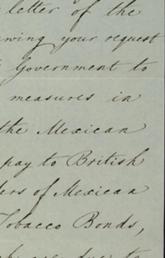 letter of the
your request
Government to
measures in
the Mexican
pay to British
of Mexican
Tobacco Bonds,